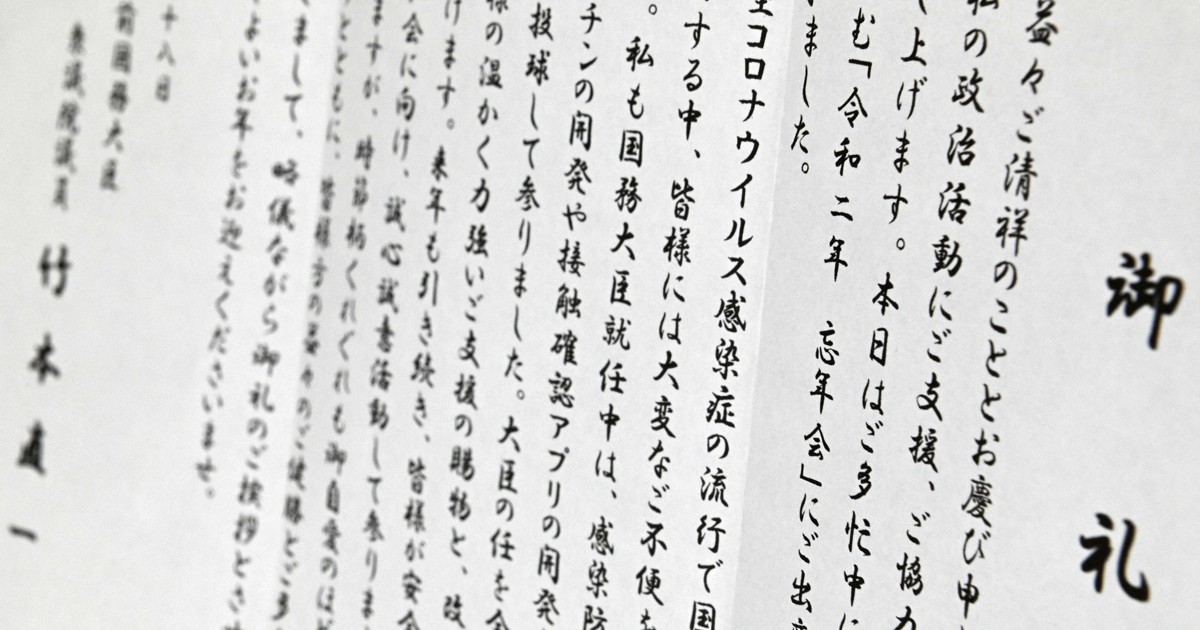 御礼
益々ご清祥のこととお慶び申
私の政治活動にご支援、ご協力
し上げます。本日はご多忙中に
む「令和二年 忘年会」にご出
ました。
コロナウイルス感染症の流行で国
する中、皆様には大変なご不便を
。私も国務大臣就任中は、感染防
チンの開発や接触確認アプリの開発
投球して参りました。大臣の任を
様の温かく力強いご支援の賜物と、改
けます。来年も引き続き、皆様が安全
会に向け、誠心誠意活動して参りま
ますが、時節柄くれぐれも御自愛のほど
とともに、皆様方の益々のご健勝とご多
まして、略儀ながら御礼のご挨拶とさ
よいお年をお迎えくださいませ。
十八日
前国務大臣
衆議院議員 竹本直一